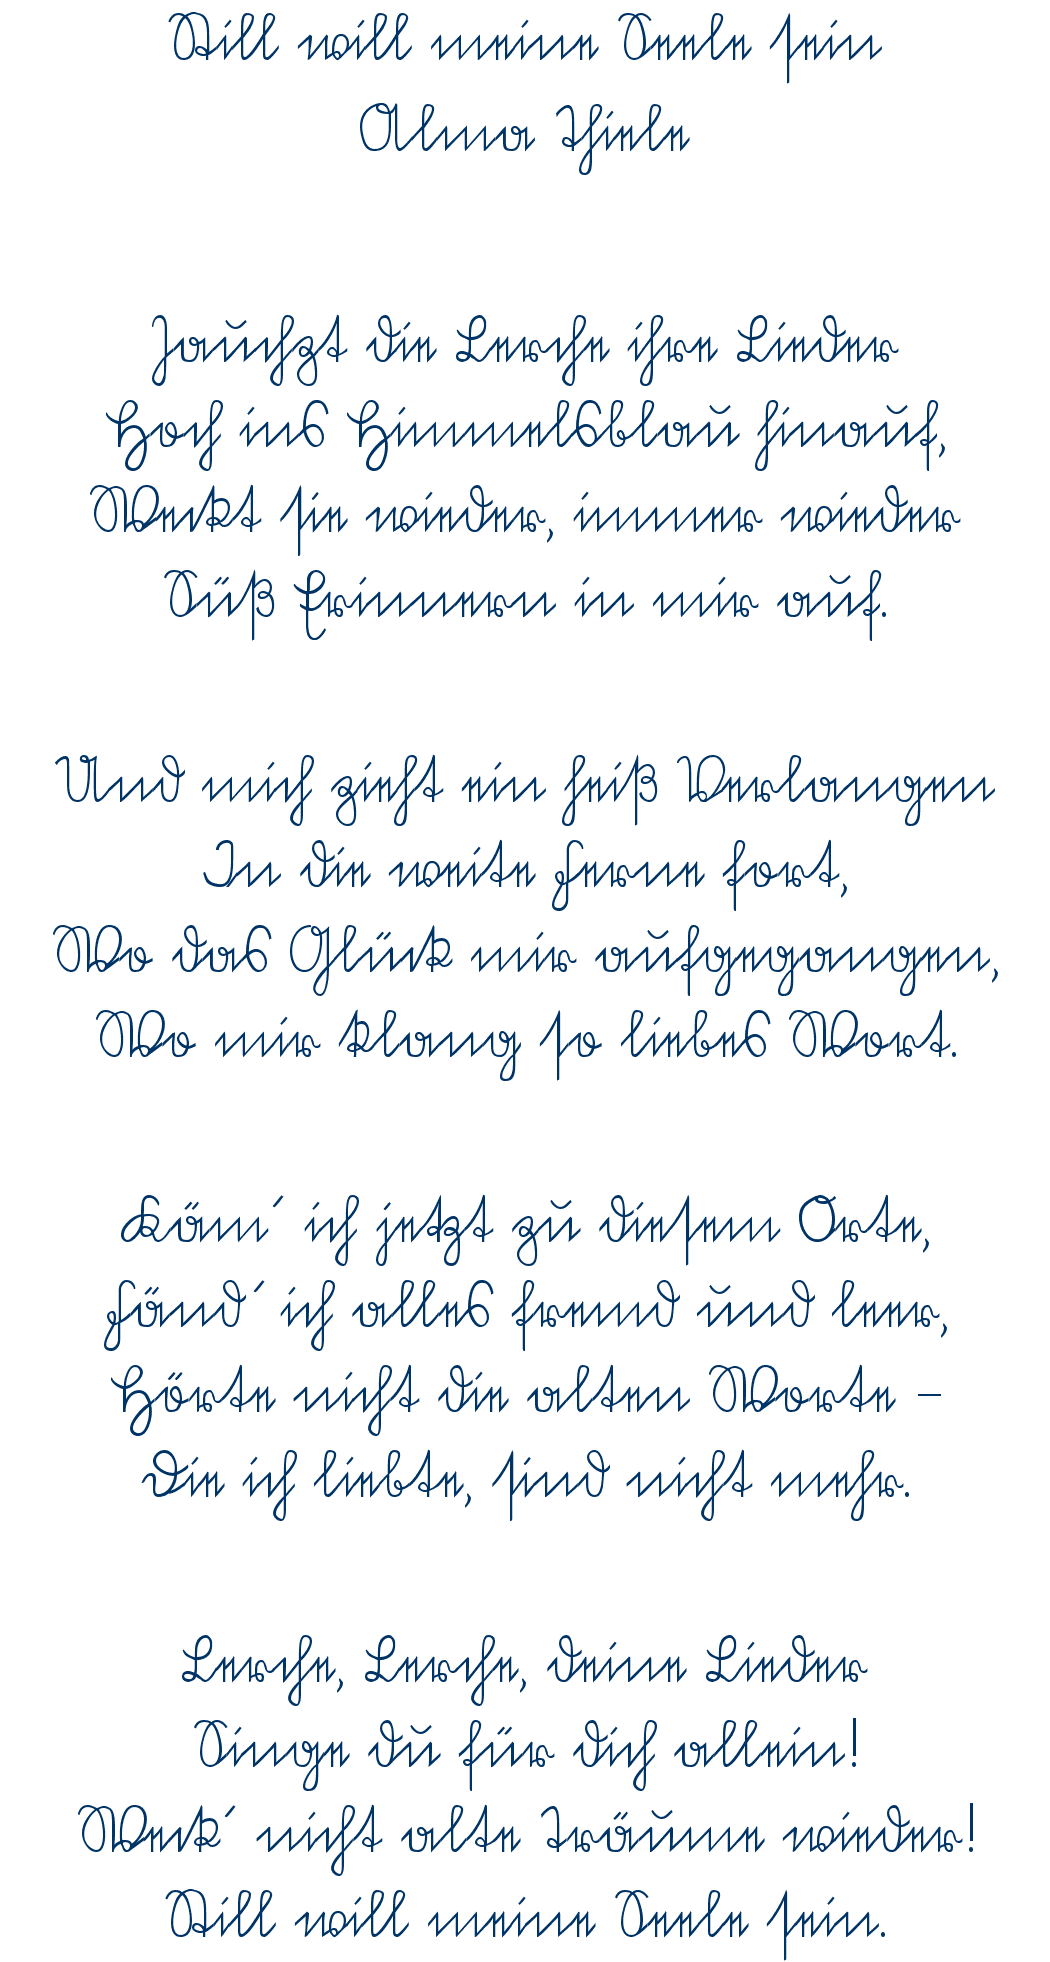 Still will meine Seele sein
Alma Thiele
Jauchzt die Lerche ihre Lieder
Hoch ins Himmelsblau hinauf,
Weckt sie wieder, immer wieder
Süß Erinnern in mir auf.
Und mich zieht ein heiß Verlangen
In die weite Ferne fort,
Wo das Glück mir aufgegangen,
Wo mir klang so liebes Wort.
Käm´ ich jetzt zu diesem Orte,
Fänd´ ich alles fremd und leer,
Hörte nicht die alten Worte –
Die ich liebte, sind nicht mehr.
Lerche, Lerche, deine Lieder
Singe du für dich allein!
Weck´ nicht alte Träume wieder!
Still will meine Seele sein.